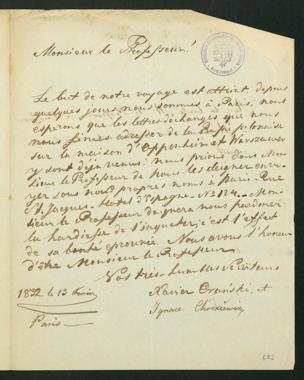 Monsieur le Professeur!
Le but de notre voyage est atteint, depuis
quelques jours nous sommes à Paris, nous
esperons que les lettres d'échange que nous
nous fimes adresser de la
sur la maison d'Oppenheim et Warszawer
y sont déjà venus: nous prions donc Mon-
sieur le Professeur de nous les
sous nos propres noms à Paris. Rue
St. Jacques. Hotel d'Espagne No. Mon-
sieur le Professeur daignera nous pardonner
la hardiesse de l'inquieter, c'est l'effet
de sa bonté Nous avons l'honneur
d'être Monsieur le Professeur.
Vos très humbles Serviteurs
1832 le 13
Xavier et
Paris
Ignace